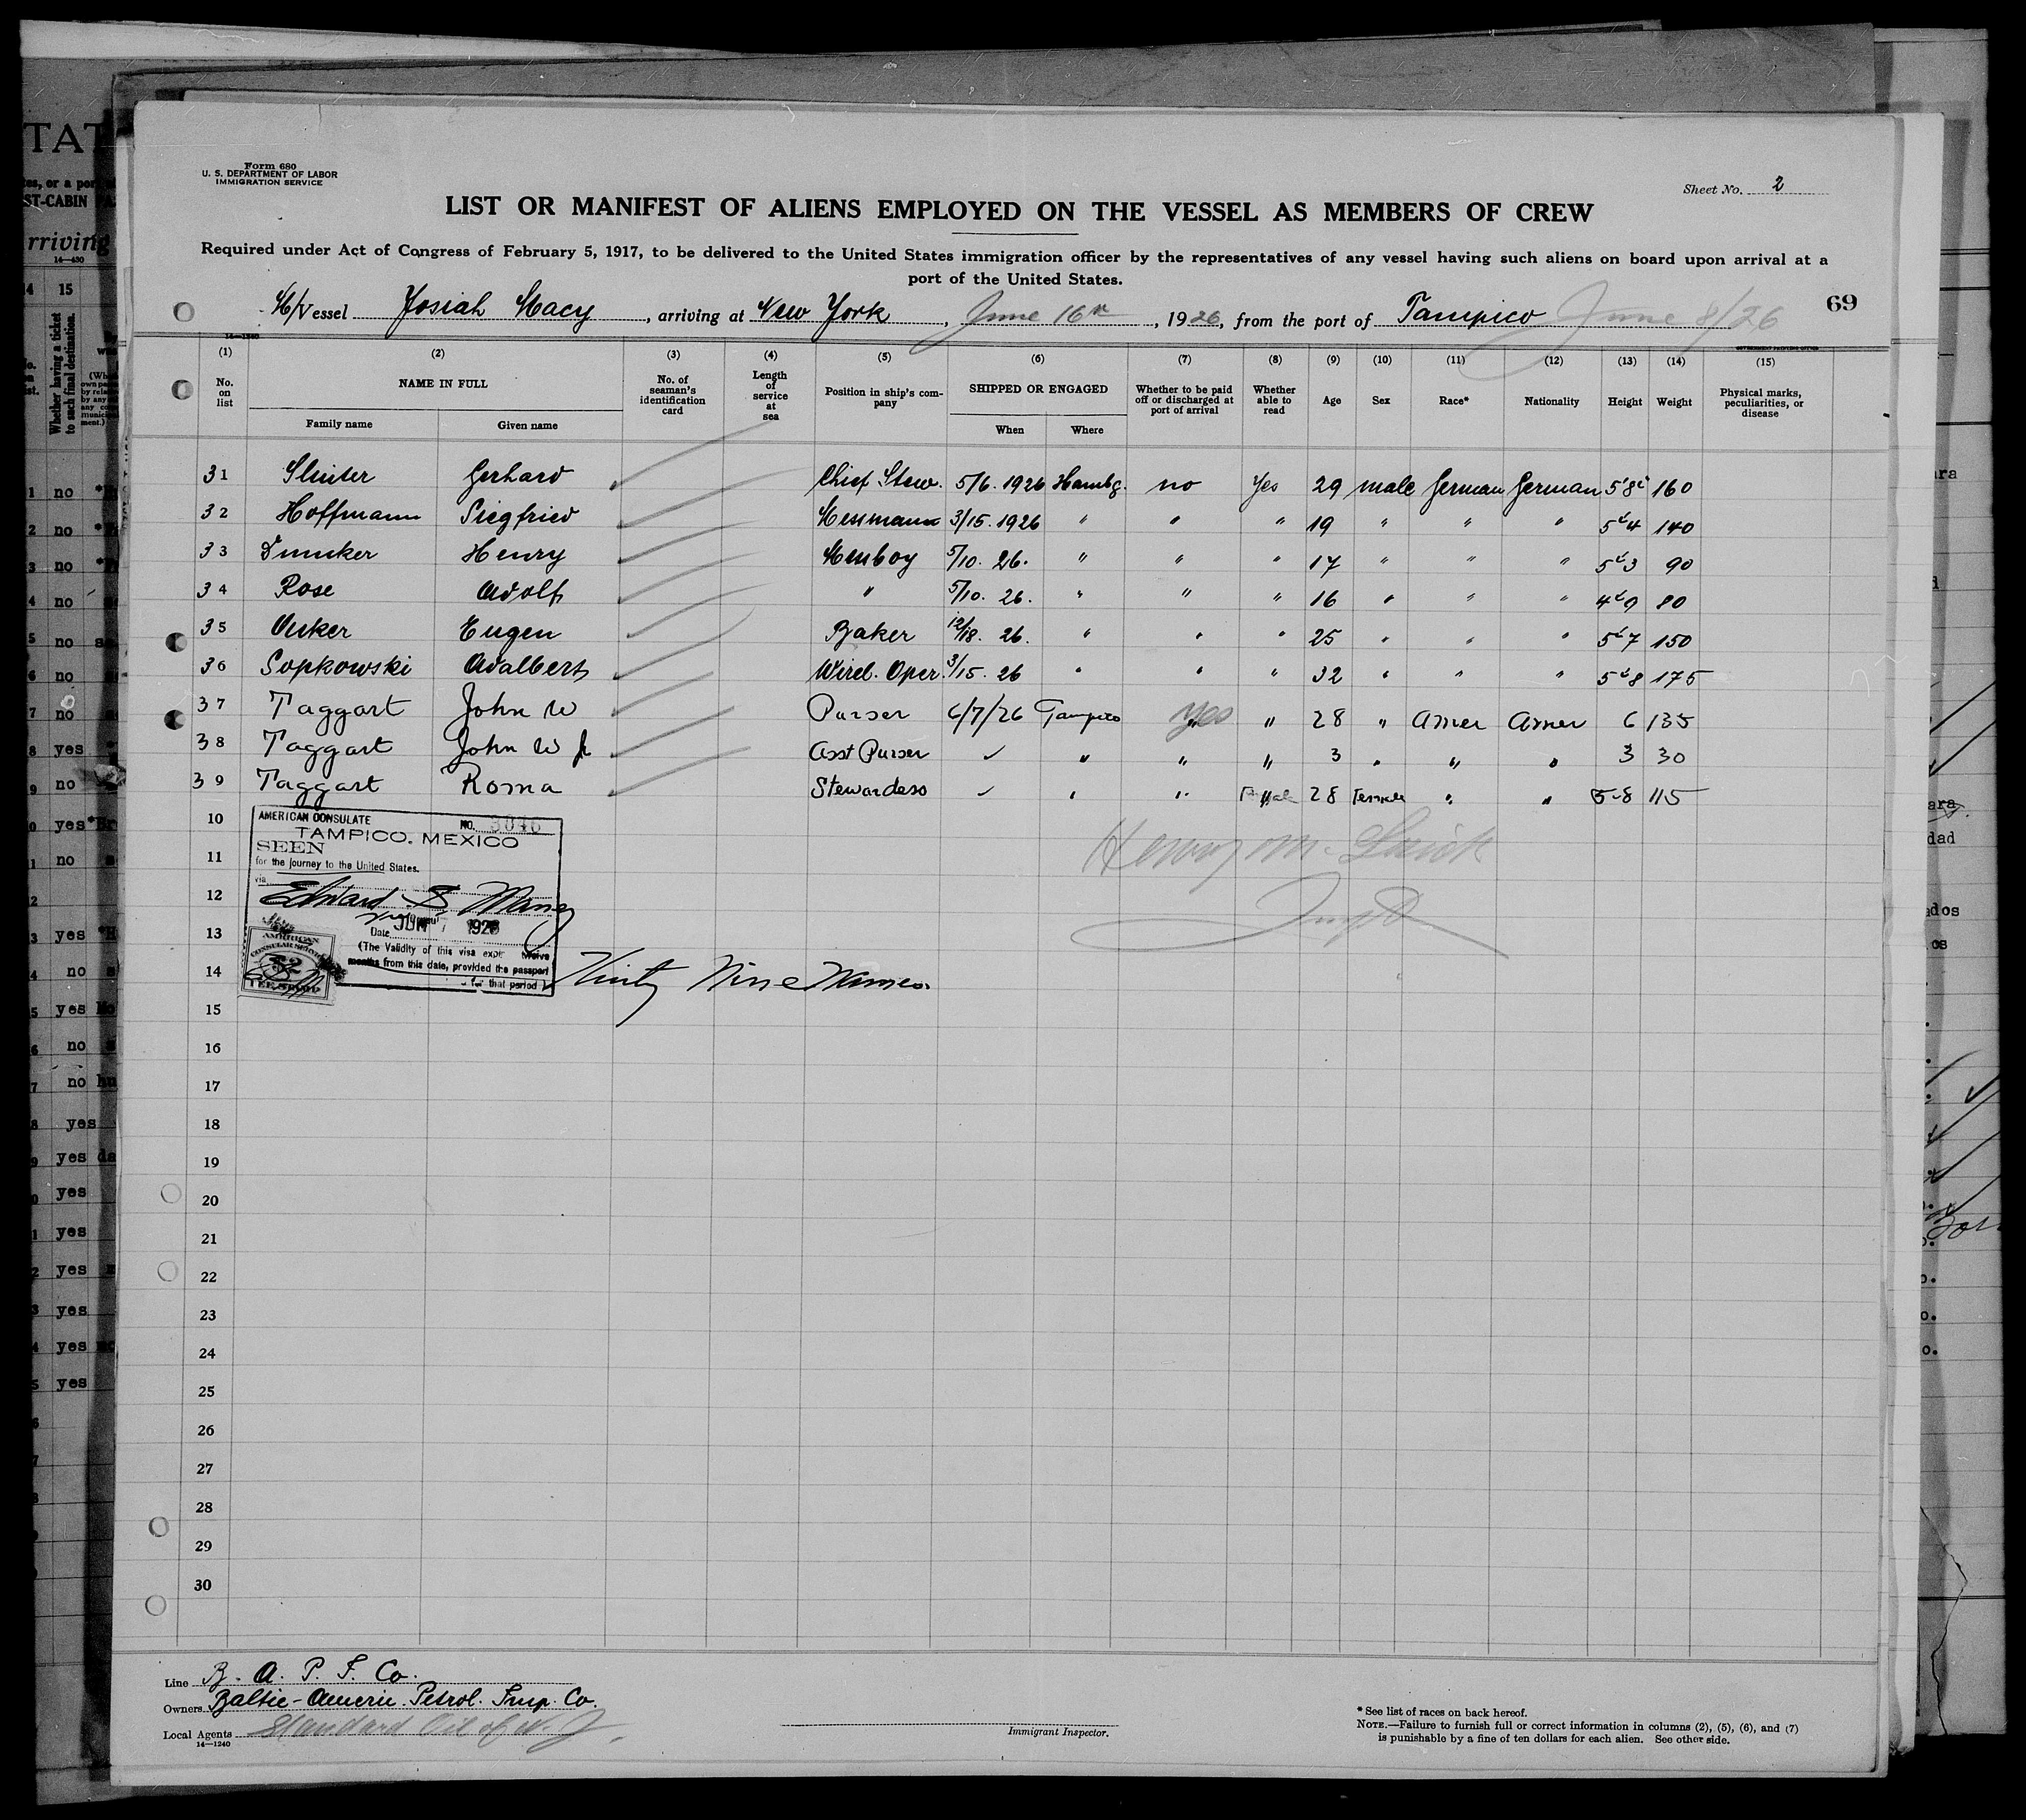 Form 680
U. S. DEPARTMENT OF LABOR
IMMIGRATION SERVICE
Sheet No. 2
LIST OR MANIFEST OF ALIENS EMPLOYED ON THE VESSEL AS MEMBERS OF CREW
Required under Act of Congress of February 5, 1917, to be delivered to the United States immigration officer by the representatives of any vessel having such aliens on board upon arrival at a
port of the United States.
M/Vessel Josiah Macy, arriving at New York, June 16th, 1926, from the port of Tampico June 8/26
69
14—1240
GOVERNMENT PRINTING OFFICE
(1) (2) (3) (4) (5) (6) (7) (8) (9) (10) (11) (12) (13) (14) (15)
No. on list NAME IN FULL Family name Given name No. of seaman's identification card Length of service at sea Position in ship's company SHIPPED OR ENGAGED When Where Whether to be paid off or discharged at port of arrival Whether able to read Age Sex Race* Nationality Height Weight Physical marks, peculiarities, or disease
31 Sluiter Gerhard Chief Stew. 5/6. 1926 Hambg. no Yes 29 male German German 5'8" 160
32 Hoffmann Siegfried Messmann 3/15. 1926 " " " 19 " " " 5'4 140
33 Henry Messboy 5/10. 26. " " " 17 " " " 5'3 90
34 Rose Adolf " 5/10. 26. " " " 16 " " " 4'9 80
35 Eugen Baker 12/18. 26. " " " 25 " " " 5'7 150
36 Sopkowski Adalbert Wirel. Oper. 3/15. 26 " " " 32 " " " 5'8 175
37 Taggart John W Purser 6/7/26 Tampico Yes " 28 " Amer Amer 6 135
38 Taggart John W Jr Asst Purser ✓ " " " 3 " " " 3 30
39 Taggart Roma Stewardess ✓ " " " 28 Female " " 5-8 115
10
11
12
13
14
15
16
17
18
19
20
21
22
23
24
25
26
27
28
29
30
AMERICAN CONSULATE
NO. 3046
TAMPICO, MEXICO
SEEN
for the journey to the United States.
via
Edward S. Maney
Date JUN 7 1926
(The Validity of this visa expires twelve
months from this date, provided the passport
for that period)
AMERICAN
CONSULAR SERVICE
$2
FEE STAMP
Thirty Nine Names.
Henry M.
Insp
Line B. A. P. I. Co.
Owners Baltic-Americ. Petrol. Imp. Co.
Local Agents Standard Oil of N. J.
14—1240
Immigrant Inspector.
* See list of races on back hereof.
NOTE.—Failure to furnish full or correct information in columns (2), (5), (6), and (7)
is punishable by a fine of ten dollars for each alien. See other side.